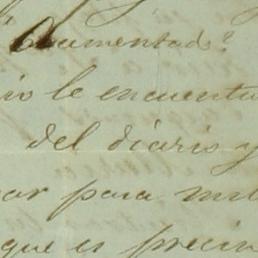 documentado?
io le encuentr
del diario y
ar para mi
que es precin